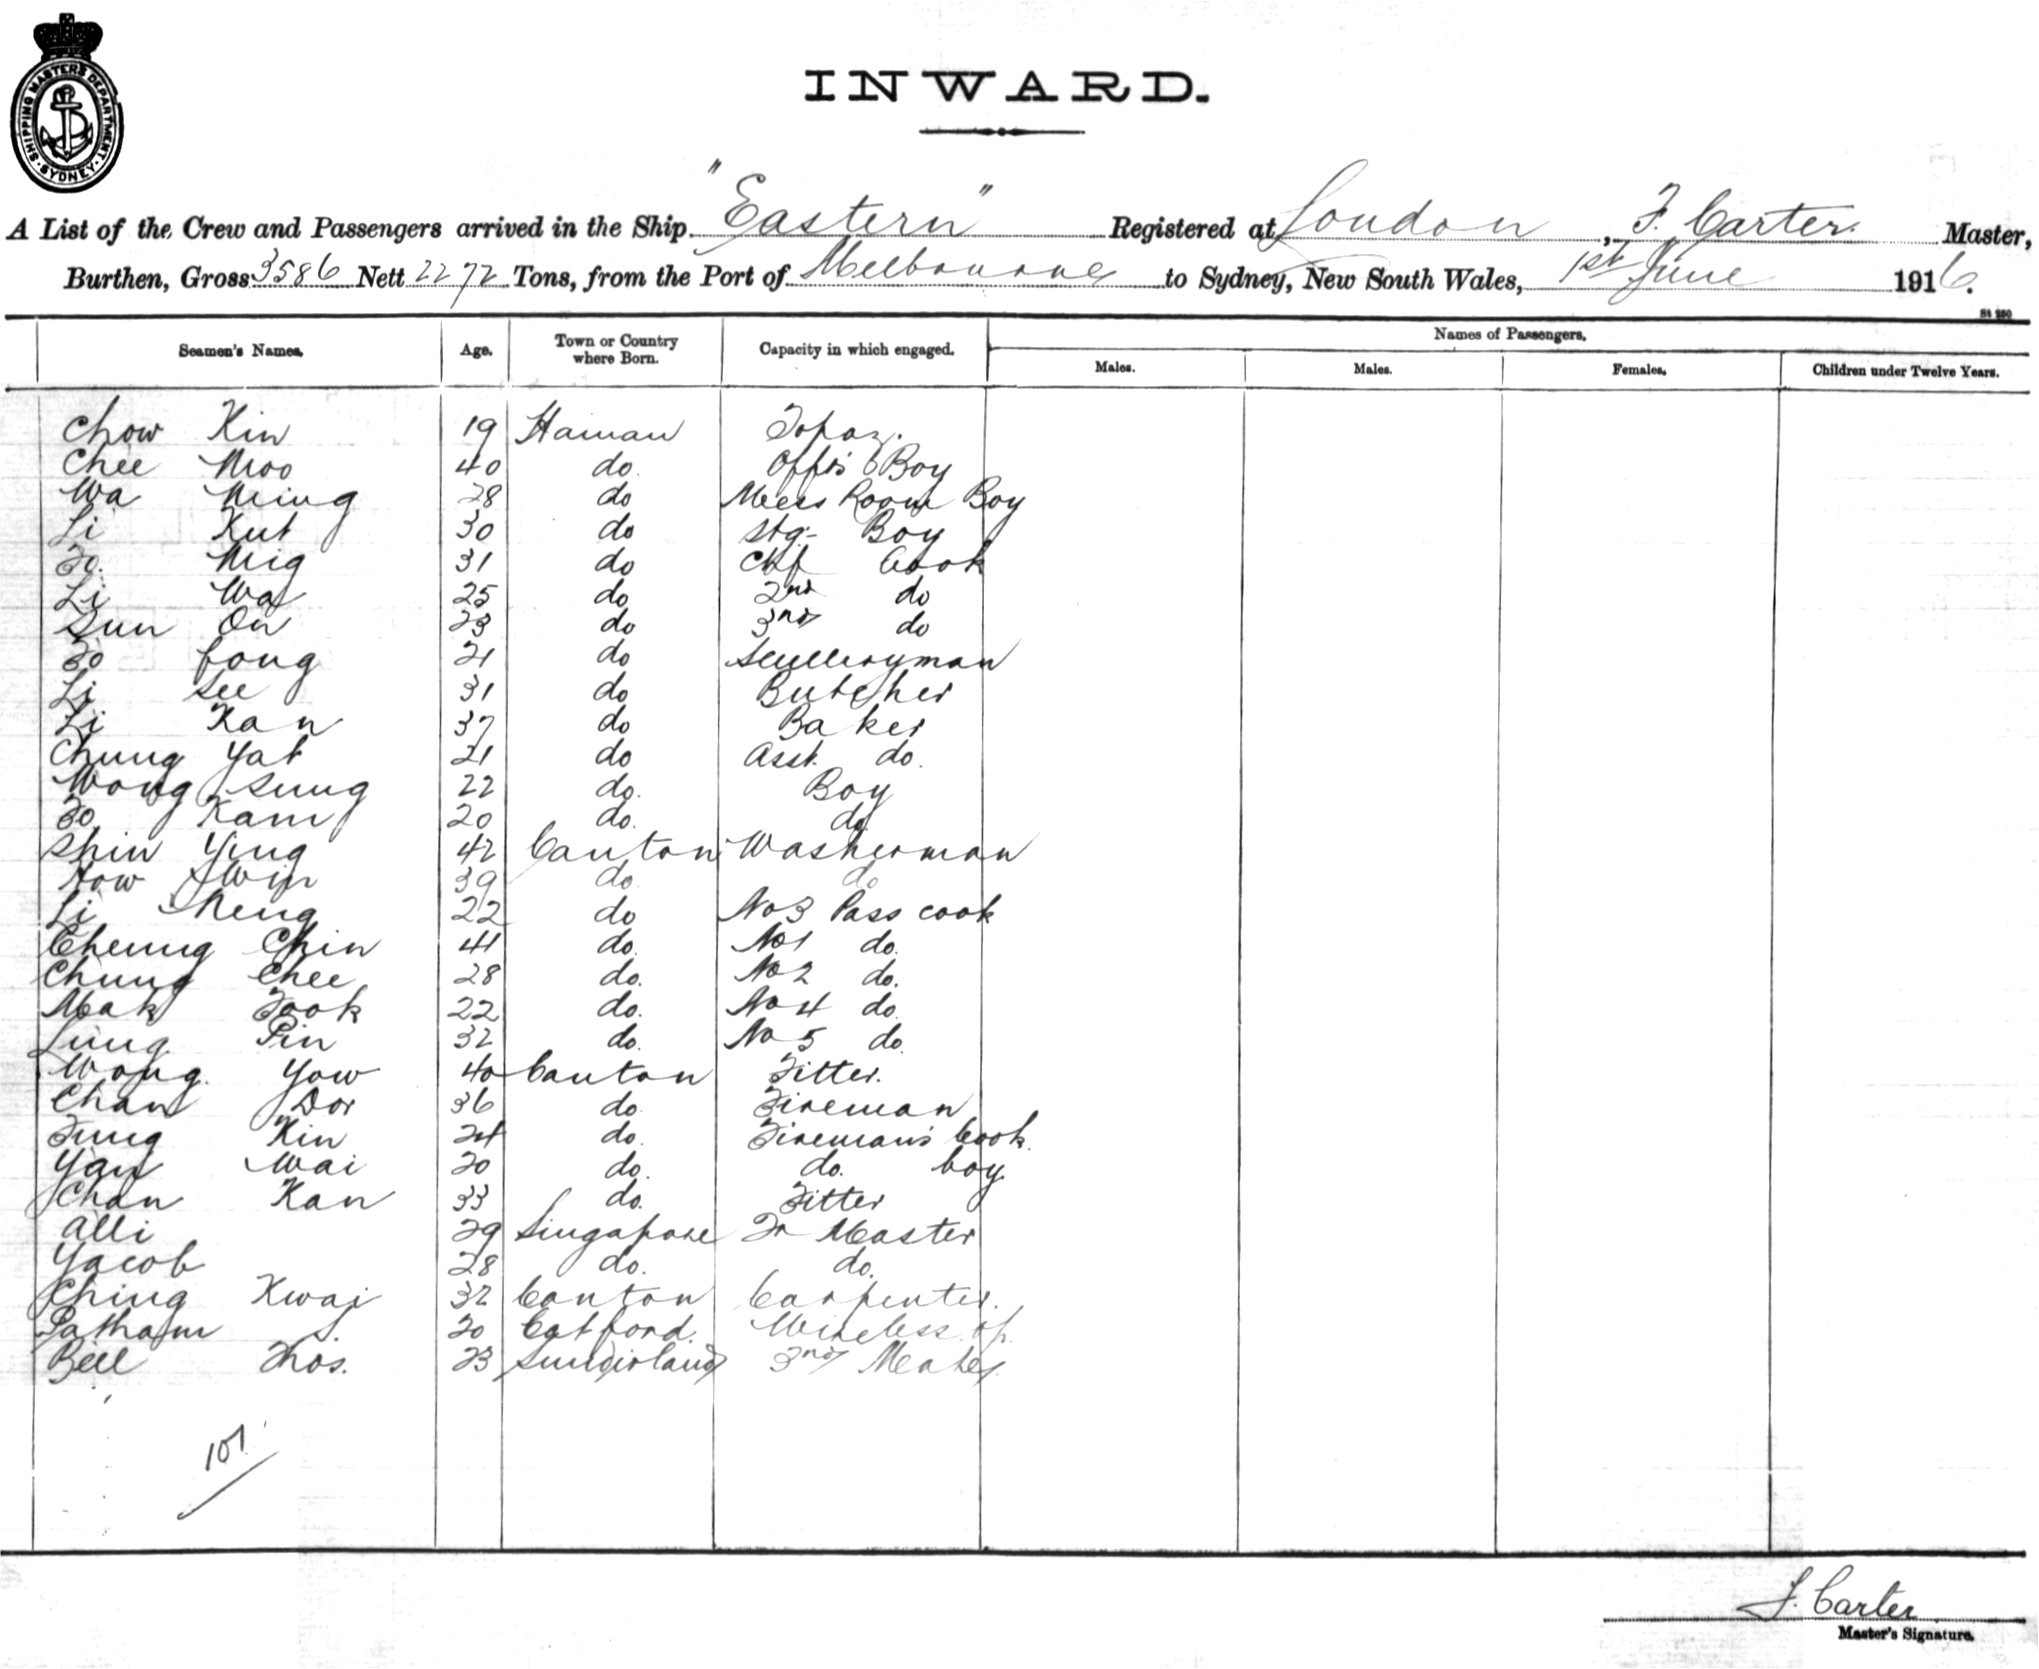 SHIPPING MASTERS DEPARTMENT · SYDNEY ·
INWARD.
A List of the Crew and Passengers arrived in the Ship "Eastern" Registered at London, F. Carter. Master,
Burthen, Gross 3586 Nett 2272 Tons, from the Port of Melbourne to Sydney, New South Wales, 1st June 1916.
St 250
Seamen's Names. Age. Town or Country where Born. Capacity in which engaged. Names of Passengers.
Males. Males. Females. Children under Twelve Years.
Chow Kin 19 Hainan Topaz.
Chee Moo 40 do. Offrs Boy
Wa Ming 28 do Mess Room Boy
Li Kut 30 do Stg- Boy
Fo. Mig 31 do Chf Cook
Li Wa 25 do 2nd do
Sun On 23 do 3rd do
Fo Fong 21 do Scullryman
Li See 31 do Butcher
Li Kan 37 do Baker
Chung Yat 21 do Asst. do.
Wong Sung 22 do. Boy
Fo Kam 20 do. do.
Shin Ying 42 Canton Washerman
How Swin 39 do. do
Li Sheng 22 do No 3 Pass cook
Cheung Chin 41 do. No 1 do.
Chung Chee 28 do. No 2 do.
Mak Fook 22 do. No 4 do.
Lung Pin 32 do. No 5 do.
Wong. Yow 40 Canton Fitter.
Chan Dor 36 do. Fireman
Fung Kin 24 do. Fireman's Cook.
Yan Wai 20 do. do. boy
Chan Kan 33 do. Fitter
Alli 29 Singapore Qr Master
Yacob 28 do. do.
Ching Kwai 32 Canton Carpenter.
S. 20 Catford. Wireless op.
Bell Thos. 23 Sunderland 3rd Mate
101
F. Carter
Master's Signature.